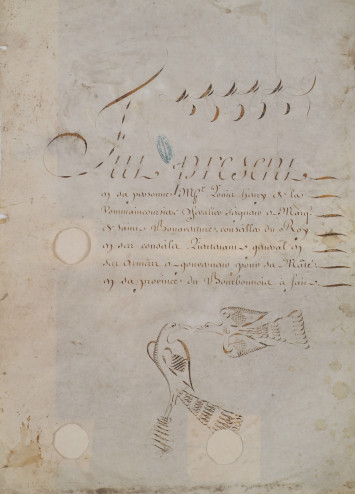 Fut present
en sa personne Mre Louis henry de la
Chevallier seigneur et Marq
de saint conseiller du Roy
en ses conseils Lieutenant general en
ses armées et gouverneur pour sa Maté
en sa province du Bourbonnois